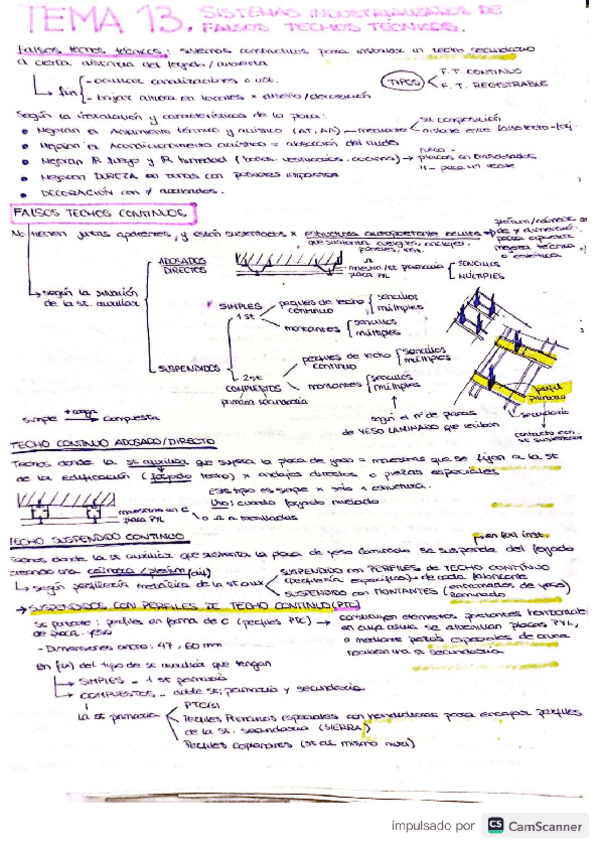 TEMA 13. SISTEMAS INDUSTRIALIZADOS DE
FALSOS TECHOS TÉCNICOS.
Falsos techos técnicos: sistemas constructivos para instalar un techo secundario
a cierta distancia del forjado / cubierta
fin
- ocultar canalizaciones o inst.
- bajar altura en locales x diseño/decoración
TIPOS
F. T. CONTINUO
F. T. REGISTRABLE
Según la instalación y características de la placa:
su composición
• Mejoran el Aislamiento térmico y acústico (AT, AA) — mediante
aislante entre falso techo-forj.
• Mejoran el Acondicionamiento acústico = absorción del ruido
• Mejoran R. fuego y R humedad (baños, vestuarios, cocinas)
FUEGO -
H -
• Mejoran DUREZA en zonas con posibles impactos
• DECORACIÓN con ≠ acabados.
FALSOS TECHOS CONTINUOS
No tienen juntas aparentes, y están sustentados x estructura autoportante oculta
que sustenta cuelgues, anclajes,
según la situación
de la st. auxiliar
ADOSADOS
DIRECTOS
para PYL
SENCILLOS
MÚLTIPLES
SUSPENDIDOS
SIMPLES
1 st
perfiles de techo
continuo
sencillos
múltiples
montantes
sencillos
múltiples
2 st
COMPUESTOS
primaria secundaria
perfiles de techo
continuo
sencillos
múltiples
montantes
sencillos
múltiples
según el nº de placas
de YESO LAMINADO que reciban
simple + carga compuesta
perfil
primario
secundario
contacto con
TECHO CONTINUO ADOSADO/DIRECTO
Techos donde la st auxiliar que sujeta la placa de yeso = maestras que se fijan a la st
de la edificación (forjado techo) x anclajes directos o piezas especiales
Este tipo es simple x
Uso: cuando forjado nivelado
maestras en C
para PYL
o Ω atornilladas
TECHO SUSPENDIDO CONTINUO
en f(x) inst.
Techos donde la st auxiliar que sustenta la placa de yeso laminado se suspende del forjado
creando una cámara / plenum (air)
según perfilería metálica de la st aux
SUSPENDIDO con PERFILES de TECHO CONTINUO
(perfilería específica) de cada fabricante
SUSTENDIDO con MONTANTES (entramados de yeso
laminado)
→ SUSPENDIDOS CON PERFILES DE TECHO CONTINUO (PTC)
St portante: perfiles en forma de C (perfiles PTC) → constituyen elementos portantes horizontales
de placa yeso
en cuya alma se atornillan placas PYL,
o mediante piezas especiales de cruce
reciben una st secundaria
- Dimensiones ancho: 47, 60 mm
en f(x) del tipo de st auxiliar que tengan
SIMPLES - 1 st primaria
COMPUESTOS - doble st; primaria y secundaria
la st primaria
PTC(s)
Perfiles Primarios especiales con hendiduras para encajar perfiles
de la st. secundaria (SIERRA)
Perfiles coplanares (st al mismo nivel)
impulsado por CS CamScanner